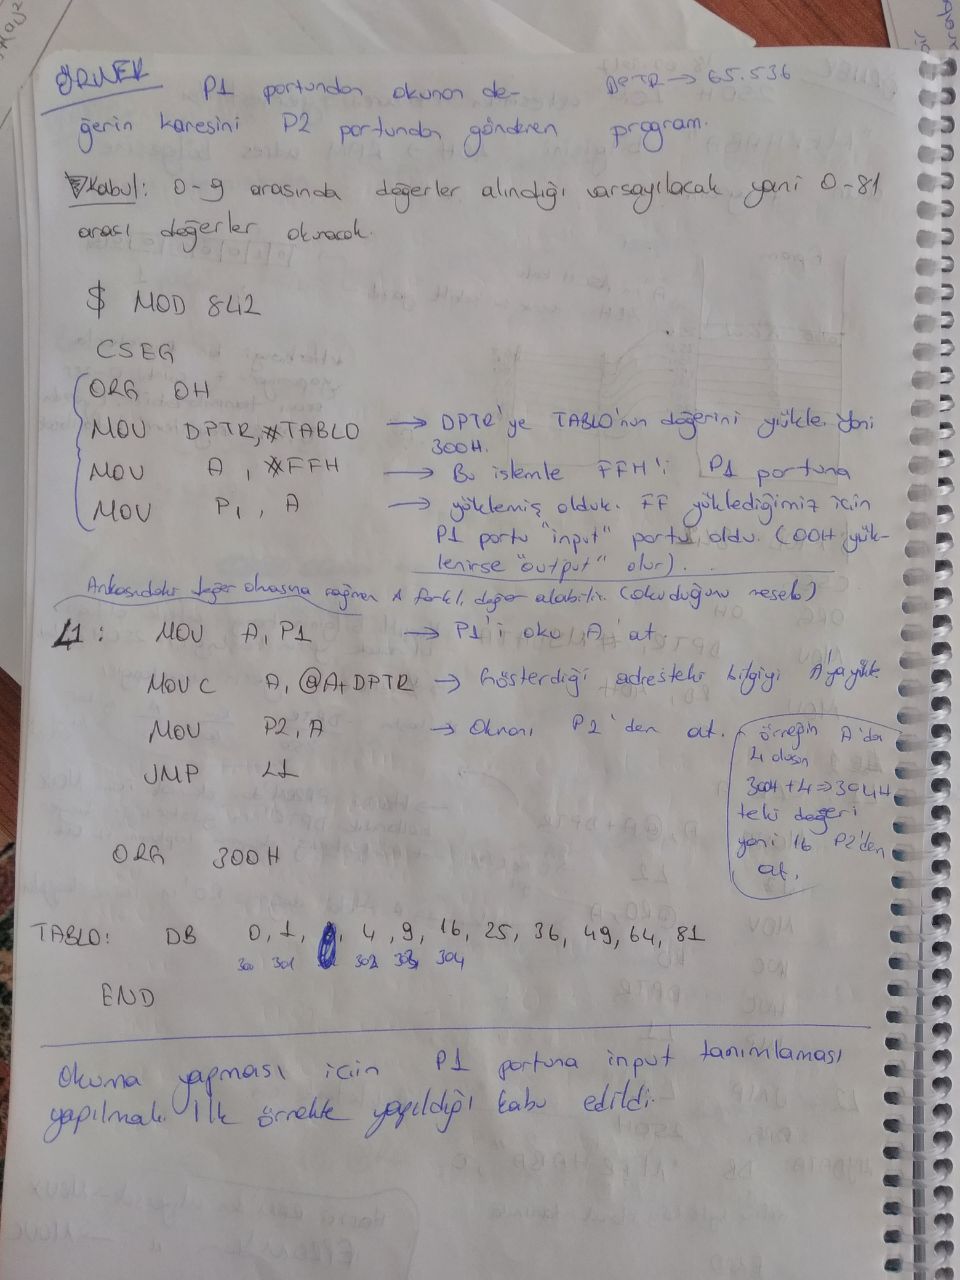 ÖRNEK P1 portundan okunan de- DPTR → 65.536
ğerin karesini P2 portundan gönderen program.
Kabul: 0-9 arasında değerler alındığı varsayılacak yani 0-81
arası değerler okunacak.
$ MOD 842
CSEG
ORG 0H
MOV DPTR, #TABLO → DPTR'ye TABLO'nun değerini yükle. Yani
300H.
MOV A, #FFH → Bu işlemle FFH'i P1 portuna
MOV P1, A → yüklemiş olduk. FF yüklediğimiz için
P1 portu "input" portu oldu. (00H yük-
lenirse "output" olur).
değer olmasına rağmen A farklı değer alabilir. (okuduğunu mesela)
L1: MOV A, P1 → P1'i oku A'at
MOVC A, @A+DPTR → Gösterdiği adresteki bilgiyi A'ya yük.
MOV P2, A → Okunanı P2'den at.
JMP L1
örneğin A'da
4 olsun
300H+4=>304H
teki değeri
yani 16 P2'den
at.
ORG 300H
TABLO: DB 0, 1, 4, 9, 16, 25, 36, 49, 64, 81
300 301 302 303 304
END
Okuma yapması için P1 portuna input tanımlaması
yapılmalı. İlk örnekte yapıldığı kabu edildi.